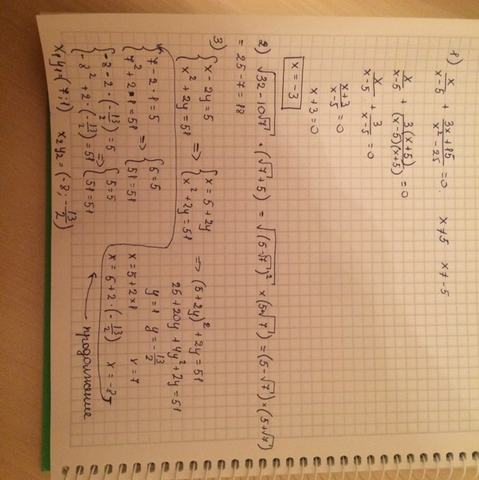 1) x/(x-5) + (3x+15)/(x²-25) = 0. x≠5 x≠-5
x/(x-5) + 3(x+5)/((x-5)(x+5)) = 0
x/(x-5) + 3/(x-5) = 0
(x+3)/(x-5) = 0
x+3=0
x=-3
2) √(32-10√7) · (√7+5) = √((5-√7)²) × (5+√7) = (5-√7)×(5+√7)
= 25-7=18
3) { x-2y=5 => { x=5+2y => (5+2y)²+2y=51
{ x²+2y=51 { x²+2y=51 25+20y+4y²+2y=51
y=1 y=-13/2
{ 7-2·1=5 => { 5=5 x=5+2×1 x=7
{ 7²+2·1=51 { 51=51 x=5+2·(-13/2) x=-8
{ -8-2·(-13/2)=5 => { 5=5
{ -8²+2·(-13/2)=51 { 51=51
x₁y₁=(7;1) x₂y₂=(-8;-13/2)
продолжение